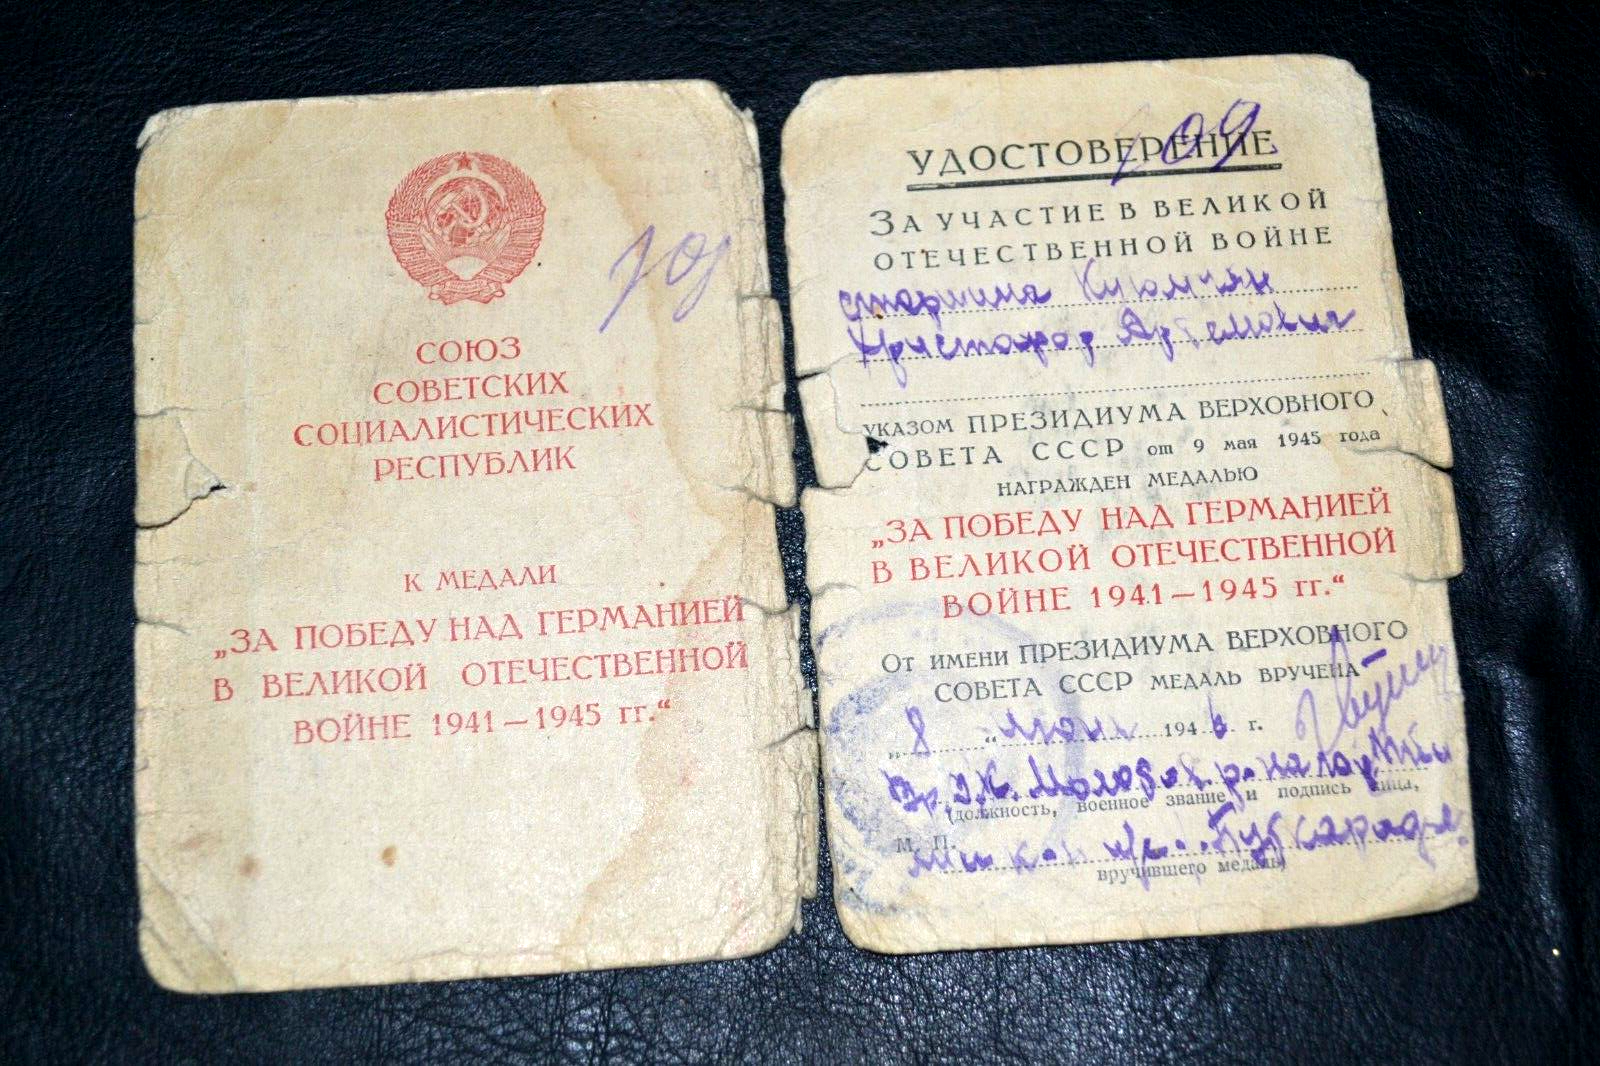 СОЮЗ
СОВЕТСКИХ
СОЦИАЛИСТИЧЕСКИХ
РЕСПУБЛИК
К МЕДАЛИ
„ЗА ПОБЕДУ НАД ГЕРМАНИЕЙ
В ВЕЛИКОЙ ОТЕЧЕСТВЕННОЙ
ВОЙНЕ 1941—1945 гг.“
УДОСТОВЕРЕНИЕ
ЗА УЧАСТИЕ В ВЕЛИКОЙ
ОТЕЧЕСТВЕННОЙ ВОЙНЕ
старшина Куюмчян
Христофор Артемович
УКАЗОМ ПРЕЗИДИУМА ВЕРХОВНОГО
СОВЕТА СССР от 9 мая 1945 года
НАГРАЖДЕН МЕДАЛЬЮ
„ЗА ПОБЕДУ НАД ГЕРМАНИЕЙ
В ВЕЛИКОЙ ОТЕЧЕСТВЕННОЙ
ВОЙНЕ 1941—1945 гг.“
ОТ ИМЕНИ ПРЕЗИДИУМА ВЕРХОВНОГО
СОВЕТА СССР МЕДАЛЬ ВРУЧЕНА
„8 „ 1946 г.
(должность, военное звание и подпись лица,
М. П.
вручившего медаль)